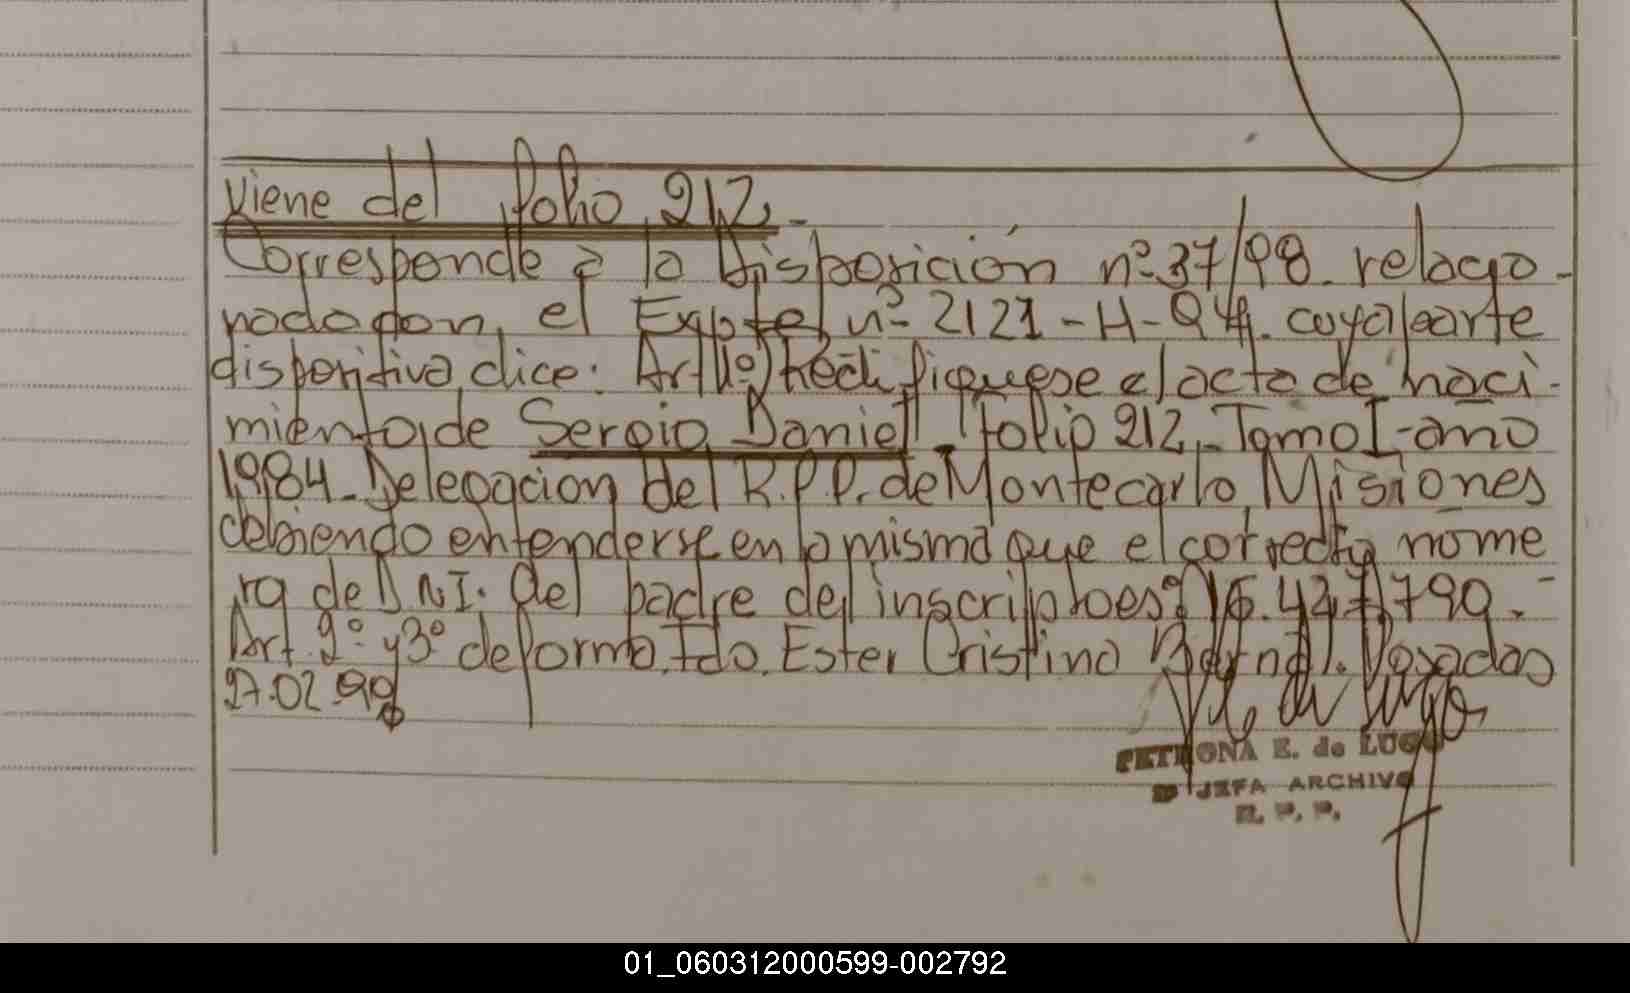 Viene del folio 212.-
Corresponde a la Disposición nº 37/98. relacio-
nado con el Expte nº 2121-H-94. cuya parte
dispositiva dice: Art 1º) Rectifiquese el acta de naci-
miento de Sergio Daniel folio 212. Tomo I-año
1984. Delegacion del R.P.P. de Montecarlo, Misiones
debiendo entenderse en la misma que el correcto nume
ro de D.N.I. del padre del inscripto es: 16.427.790.-
Art. 2º y 3º de forma. Fdo. Ester Cristina Posadas
27.02.98
PETRONA E. de LUGO
JEFA ARCHIVO
R. P. P.
01_060312000599-002792